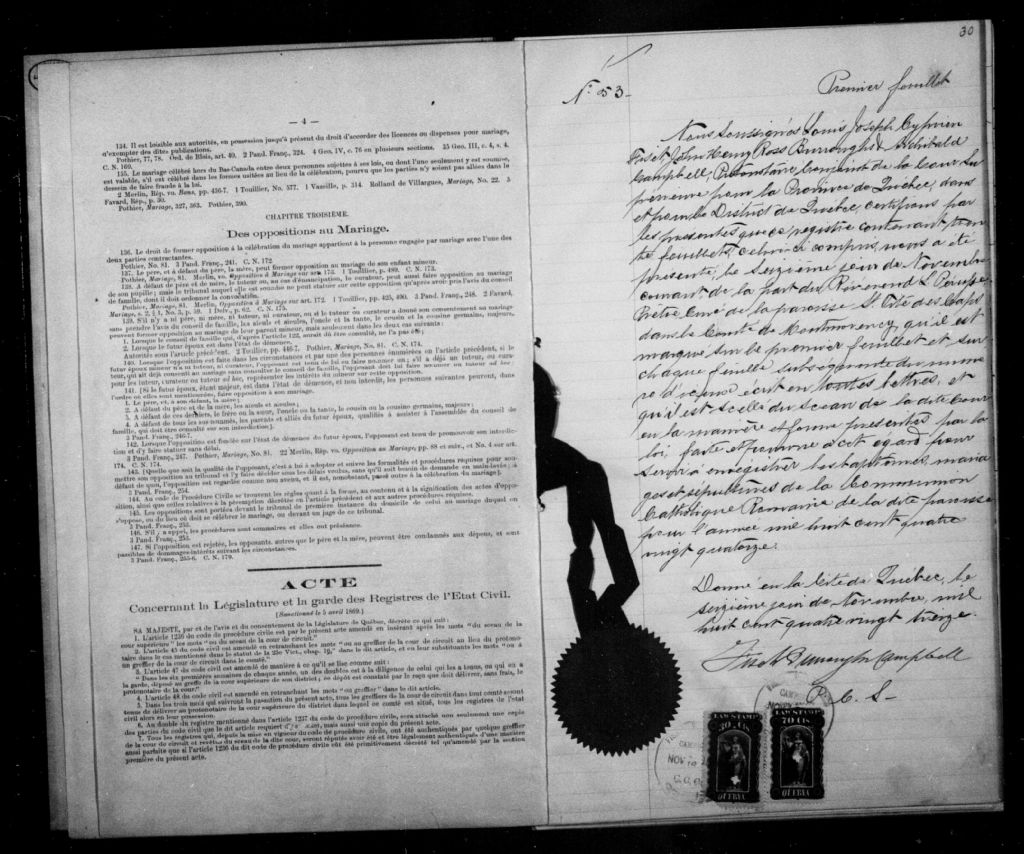 — 4 —
134. Il est loisible aux autorités, en possession jusqu'à présent du droit d'accorder des licences ou dispenses pour mariage,
d'exempter des dites publications.
Pothier, 77, 78. Ord. de Blois, art. 40. 2 Pand. Franç., 324. 4 Geo. IV, c. 76 en plusieurs sections. 25 Geo. III, c. 4, s. 4.
C. N. 169.
135. Le mariage célébré hors du Bas-Canada entre deux personnes sujettes à ses lois, ou dont l'une seulement y est soumise,
est valable, s'il est célébré dans les formes usitées au lieu de la célébration, pourvu que les parties n'y soient pas allées dans le
dessein de faire fraude à la loi.
2 Merlin, Rép. vo. Bans, pp. 456-7. 1 Touillier, No. 577. 1 Vazeille, p. 314. Rolland de Villargues, Mariage, No. 22. 5
Favard, Rép., p. 50.
Pothier, Mariage, 327, 363. Pothier, 390.
CHAPITRE TROISIÈME.
Des oppositions au Mariage.
136. Le droit de former opposition à la célébration du mariage appartient à la personne engagée par mariage avec l'une des
deux parties contractantes.
Pothier, No. 81. 3 Pand. Franç., 241. C. N. 172.
137. Le père, et à défaut du père, la mère, peut former opposition au mariage de son enfant mineur.
Pothier, Mariage, 81. Merlin, vo. Opposition à Mariage sur art. 173. 1 Touillier, p. 489. C. N. 173.
138. A défaut de père et de mère, le tuteur ou, au cas d'émancipation, le curateur, peut aussi faire opposition au mariage
de son pupille; mais le tribunal auquel elle est soumise ne peut statuer sur cette opposition qu'après avoir pris l'avis du conseil
de famille, dont il doit ordonner la convocation.
Pothier, Mariage, 81. Merlin, Opposition à Mariage sur art. 172. 1 Touillier, pp. 425, 490. 3 Pand. Franç., 248. 2 Favard,
Mariage, s. 2, § 1, No. 5, p. 59. 1 Delv., p. 62. C. N. 175.
139. S'il n'y a ni père, ni mère, ni tuteur, ni curateur, ou si le tuteur ou curateur a donné son consentement au mariage
sans prendre l'avis du conseil de famille, les aïeuls et aïeules, l'oncle et la tante, le cousin et la cousine germains, majeurs,
peuvent former opposition au mariage de leur parent mineur, mais seulement dans les deux cas suivants:
1. Lorsque le conseil de famille qui, d'après l'article 122, aurait dû être consulté, ne l'a pas été;
2. Lorsque le futur époux est dans l'état de démence.
Pothier, pp. 446-7. Pothier, Mariage, No. 81. C. N. 174.
Autorités sous l'article précédent. 2 Touillier, pp. 446-7.
140. Lorsque l'opposition est faite dans les circonstances et par une des personnes énumérées en l'article précédent, si le
futur époux mineur n'a ni tuteur, ni curateur, l'opposant est tenu de lui en faire nommer un; s'il a déjà un tuteur, ou curateur,
qui ait déjà consenti au mariage sans consulter le conseil de famille, l'opposant doit lui faire nommer un tuteur ad hoc,
pour les tuteur, curateur ou tuteur ad hoc, représenter les intérêts du mineur sur cette opposition.
141. [Si le futur époux, étant majeur, est dans l'état de démence, et non interdit, les personnes suivantes peuvent, dans
l'ordre où elles sont mentionnées, faire opposition à son mariage.
1. Le père, et, à son défaut, la mère;
2. A défaut du père et de la mère, les aïeuls et aïeules;
3. A défaut de ces derniers, le frère ou la sœur, l'oncle ou la tante, le cousin ou la cousine germains, majeurs;
4. A défaut de tous les sus nommés, les parents et alliés du futur époux, qualifiés à assister à l'assemblée du conseil de
famille, qui doit être consulté sur son interdiction].
3 Pand. Franç., 246-7.
142. Lorsque l'opposition est fondée sur l'état de démence du futur époux, l'opposant est tenu de promouvoir son interdiction
et d'y faire statuer sans délai.
3 Pand. Franç., 247. Pothier, Mariage, No. 81. 22 Merlin, Rép. vo. Opposition au Mariage, pp. 88 et suiv., et No. 4 sur art.
174. C. N. 174.
143. [Quelle que soit la qualité de l'opposant, c'est à lui à adopter et suivre les formalités et procédures requises pour soumettre
son opposition au tribunal et l'y faire décider sous les délais voulus, sans qu'il soit besoin de demande en main-levée; à
défaut de quoi, l'opposition est regardée comme non avenu, et il est, nonobstant, passé outre à la célébration du mariage].
3 Pand. Franç., 254.
144. Au code de Procédure Civile se trouvent les règles quant à la forme, au contenu et à la signification des actes d'opposition,
ainsi que celles relatives à la péremption décrétée en l'article précédent et aux autres procédures requises.
145. Les oppositions sont portées devant le tribunal de première instance du domicile de celui au mariage duquel on
s'oppose, ou du lieu où doit se célébrer le mariage, ou devant un juge de ce tribunal.
3 Pand. Franç., 255.
146. S'il y a appel, les procédures sont sommaires et elles ont préséance.
3 Pand. Franç., 255.
147. Si l'opposition est rejetée, les opposants, autres que le père et la mère, peuvent être condamnés aux dépens, et sont
passibles de dommages-intérêts suivant les circonstances.
3 Pand. Franç., 255-6. C. N. 179.
ACTE
Concernant la Législature et la garde des Registres de l'Etat Civil.
[Sanctionné le 5 avril 1869.]
SA MAJESTE, par et de l'avis et du consentement de la Législature de Québec, décrète ce qui suit:
1. L'article 1236 du code de procédure civile est par le présent acte amendé en insérant après les mots "du sceau de la
cour supérieure" les mots "ou du sceau de la cour de circuit."
2. L'article 45 du code civil est amendé en retranchant les mots "ou au greffier de la cour de circuit au lieu du protonotaire
dans le cas mentionné dans le statut de la 25e Vict., chap. 16," dans le dit article, et en leur substituants les mots "ou à
un greffier de la cour de circuit dans le comté."
3. L'article 47 du code civil est amendé de manière à ce qu'il se lise comme suit:
"Dans les six premières semaines de chaque année, un des doubles est à la diligence de celui qui les a tenus, ou qui en a
la garde, déposé au greffe de la cour supérieure de son district; ce dépôt est constaté par le reçu que doit délivrer, sans frais, le
protonotaire de la cour."
4. L'article 48 du code civil est amendé en retranchant les mots "ou greffier" dans le dit article.
5. Dans les trois mois qui suivront la passation du présent acte, tous les greffiers de la cour de circuit dans tout comté seront
tenus de délivrer au protonotaire de la cour supérieure du district dans lequel ce comté est situé, tous les registres de l'état
civil alors en leur possession.
6. Au double du registre mentionné dans l'article 1237 du code de procédure civile, sera attaché non seulement une copie
des parties du code civil que le dit article requiert d'y annexer, mais aussi une copie du présent acte.
7. Tous les registres qui, depuis la mise en vigueur du code de procédure civile, ont été authentiqués par quelque greffier
de la cour de circuit et revêtus du sceau de la dite cour, seront réputés avoir été et être légalement authentiqués d'une manière
aussi parfaite que si l'article 1236 du dit code de procédure civile eût été primitivement décrété tel qu'amendé par la section
première du présent acte.
30
N° 53-
Premier feuillet
Nous Soussignés Louis Joseph Cyprien
Fiset John Henry Ross Burroughs & Archibald
Campbell, Protonotaire Conjoint de la Cour Su
périeure pour la Province de Québec, dans
et pour le District de Québec, certifions par
les présentes que ce registre contenant tren
te feuillets, celui-ci compris, nous a été
présenté, le seizième jour de Novembre
courant de la part du Révérend L Pérusse
Prêtre Curé de la paroisse St Tite des Caps
dans le Comté de Montmorency, qu'il est
marqué sur le premier feuillet et sur
chaque feuille subséquente du numé
ro d'icelui écrit en toutes lettres, et
qu'il est scellé du Sceau de la dite Cour
en la manière et forme prescrites par la
loi, faite et fournie à cet égard pour
servir à enregistrer les baptêmes, maria
ges et sépultures de la Communion
Catholique Romaine de la dite paroisse
pour l'année mil huit cent quatre
vingt quatorze.
Donné en la Cité de Québec, le
seizième jour de Novembre, mil
huit cent quatre vingt treize.
Fiset Burroughs Campbell
P. C. S-
LAW STAMP
30 Cts
QUEBEC
LAW STAMP
70 Cts
QUEBEC
NOV 16